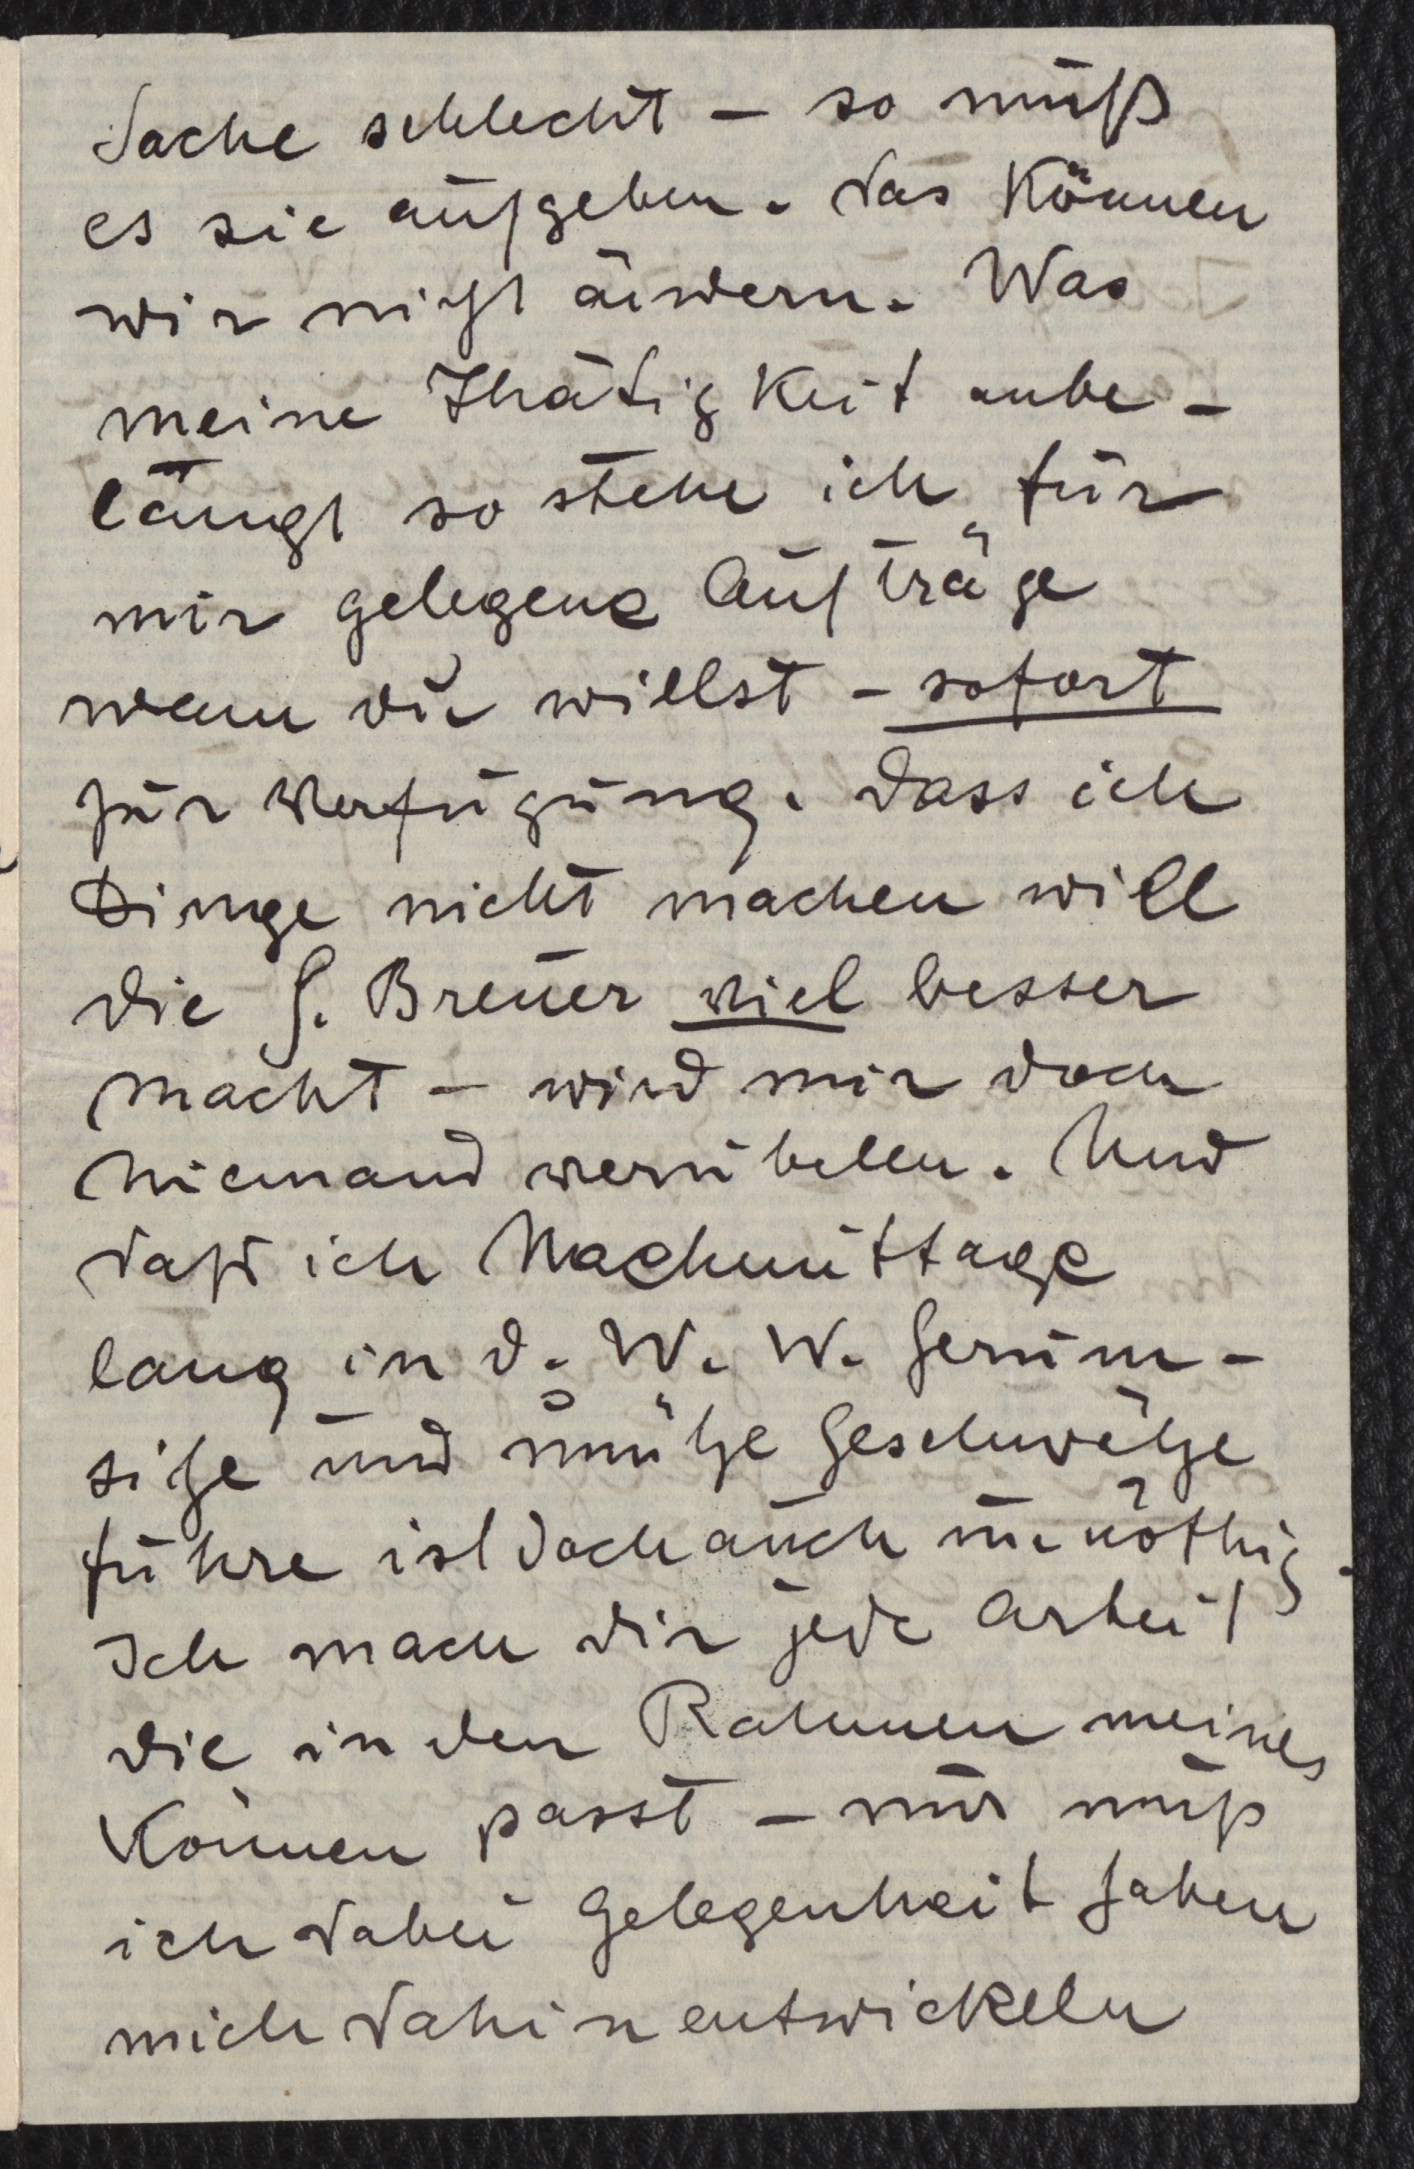 Sache schlecht – so muß
es sie aufgeben. Das können
wir nicht ändern. Was
meine Thätigkeit anbe-
langt so stehe ich für
mir gelegene Aufträge
wann du willst – sofort
zur Verfügung. Dass ich
Dinge nicht machen will
die H. Breuer viel besser
macht – wird mir doch
Niemand verübeln. Und
daß ich Nachmittage
lang in d. W. W. herum-
sitze und unnütze Geschwätze
führe ist doch auch unnöthig.
Ich mach dir jede Arbeit
die in den Rahmen meines
Können passt – nur muß
ich dabei Gelegenheit haben
mich dahin entwickeln